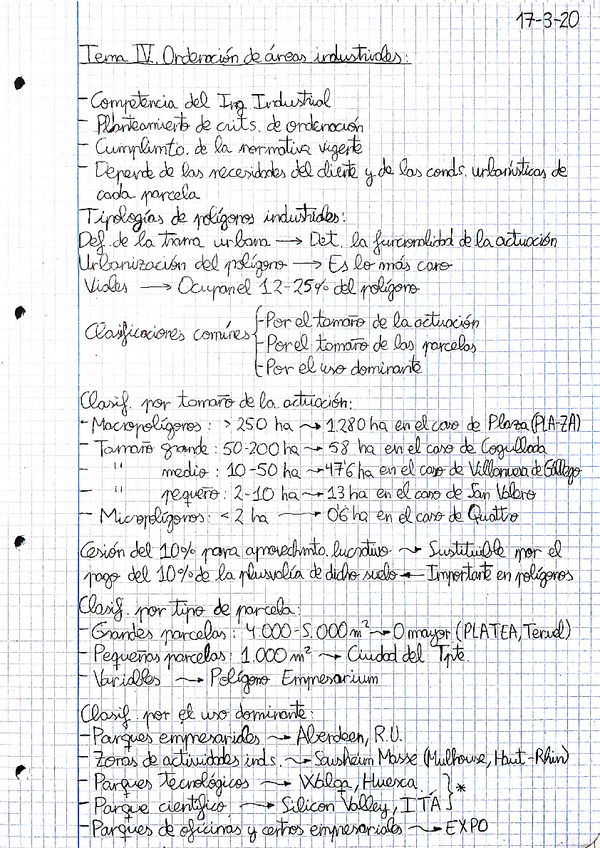 17-3-20
Tema IV. Ordenación de áreas industriales:
- Competencia del Ing. Industrial
- Planteamiento de crits. de ordenación
- Cumplimto. de la normativa vigente
- Depende de las necesidades del cliente y de las conds. urbanísticas de
cada parcela
Tipologías de polígonos industriales:
Def. de la trama urbana → Det. la funcionalidad de la actuación
Urbanización del polígono → Es lo más caro
Viales → Ocupan el 12-25% del polígono
Clasificaciones comunes
- Por el tamaño de la actuación
- Por el tamaño de las parcelas
- Por el uso dominante
Clasif. por tamaño de la actuación:
- Macropolígonos: > 250 ha → 1.280 ha en el caso de Plaza (PLA-ZA)
- Tamaño grande: 50-200 ha → 58 ha en el caso de Cogullada
- " medio: 10-50 ha → 47'6 ha en el caso de Villanueva de Gállego
- " pequeño: 2-10 ha → 13 ha en el caso de San Valero
- Micropolígonos: < 2 ha → 0'6 ha en el caso de Quattro
Cesión del 10% para aprovechmto. lucrativo → Sustituible por el
pago del 10% de la plusvalía de dicho suelo ← Importante en polígonos
Clasif. por tipo de parcela:
- Grandes parcelas: 4.000-5.000 m² → O mayor (PLATEA, Teruel)
- Pequeñas parcelas: 1.000 m² → Ciudad del Tpte.
- Variables → Polígono Empresarium
Clasif. por el uso dominante:
- Parques empresariales → Aberdeen, R.U.
- Zonas de actividades inds. → Sausheim Masse (Mulhouse, Haut-Rhin)
- Parques tecnológicos → Walqa, Huesca } *
- Parque científico → Silicon Valley, ITA
- Parques de oficinas y centros empresariales → EXPO